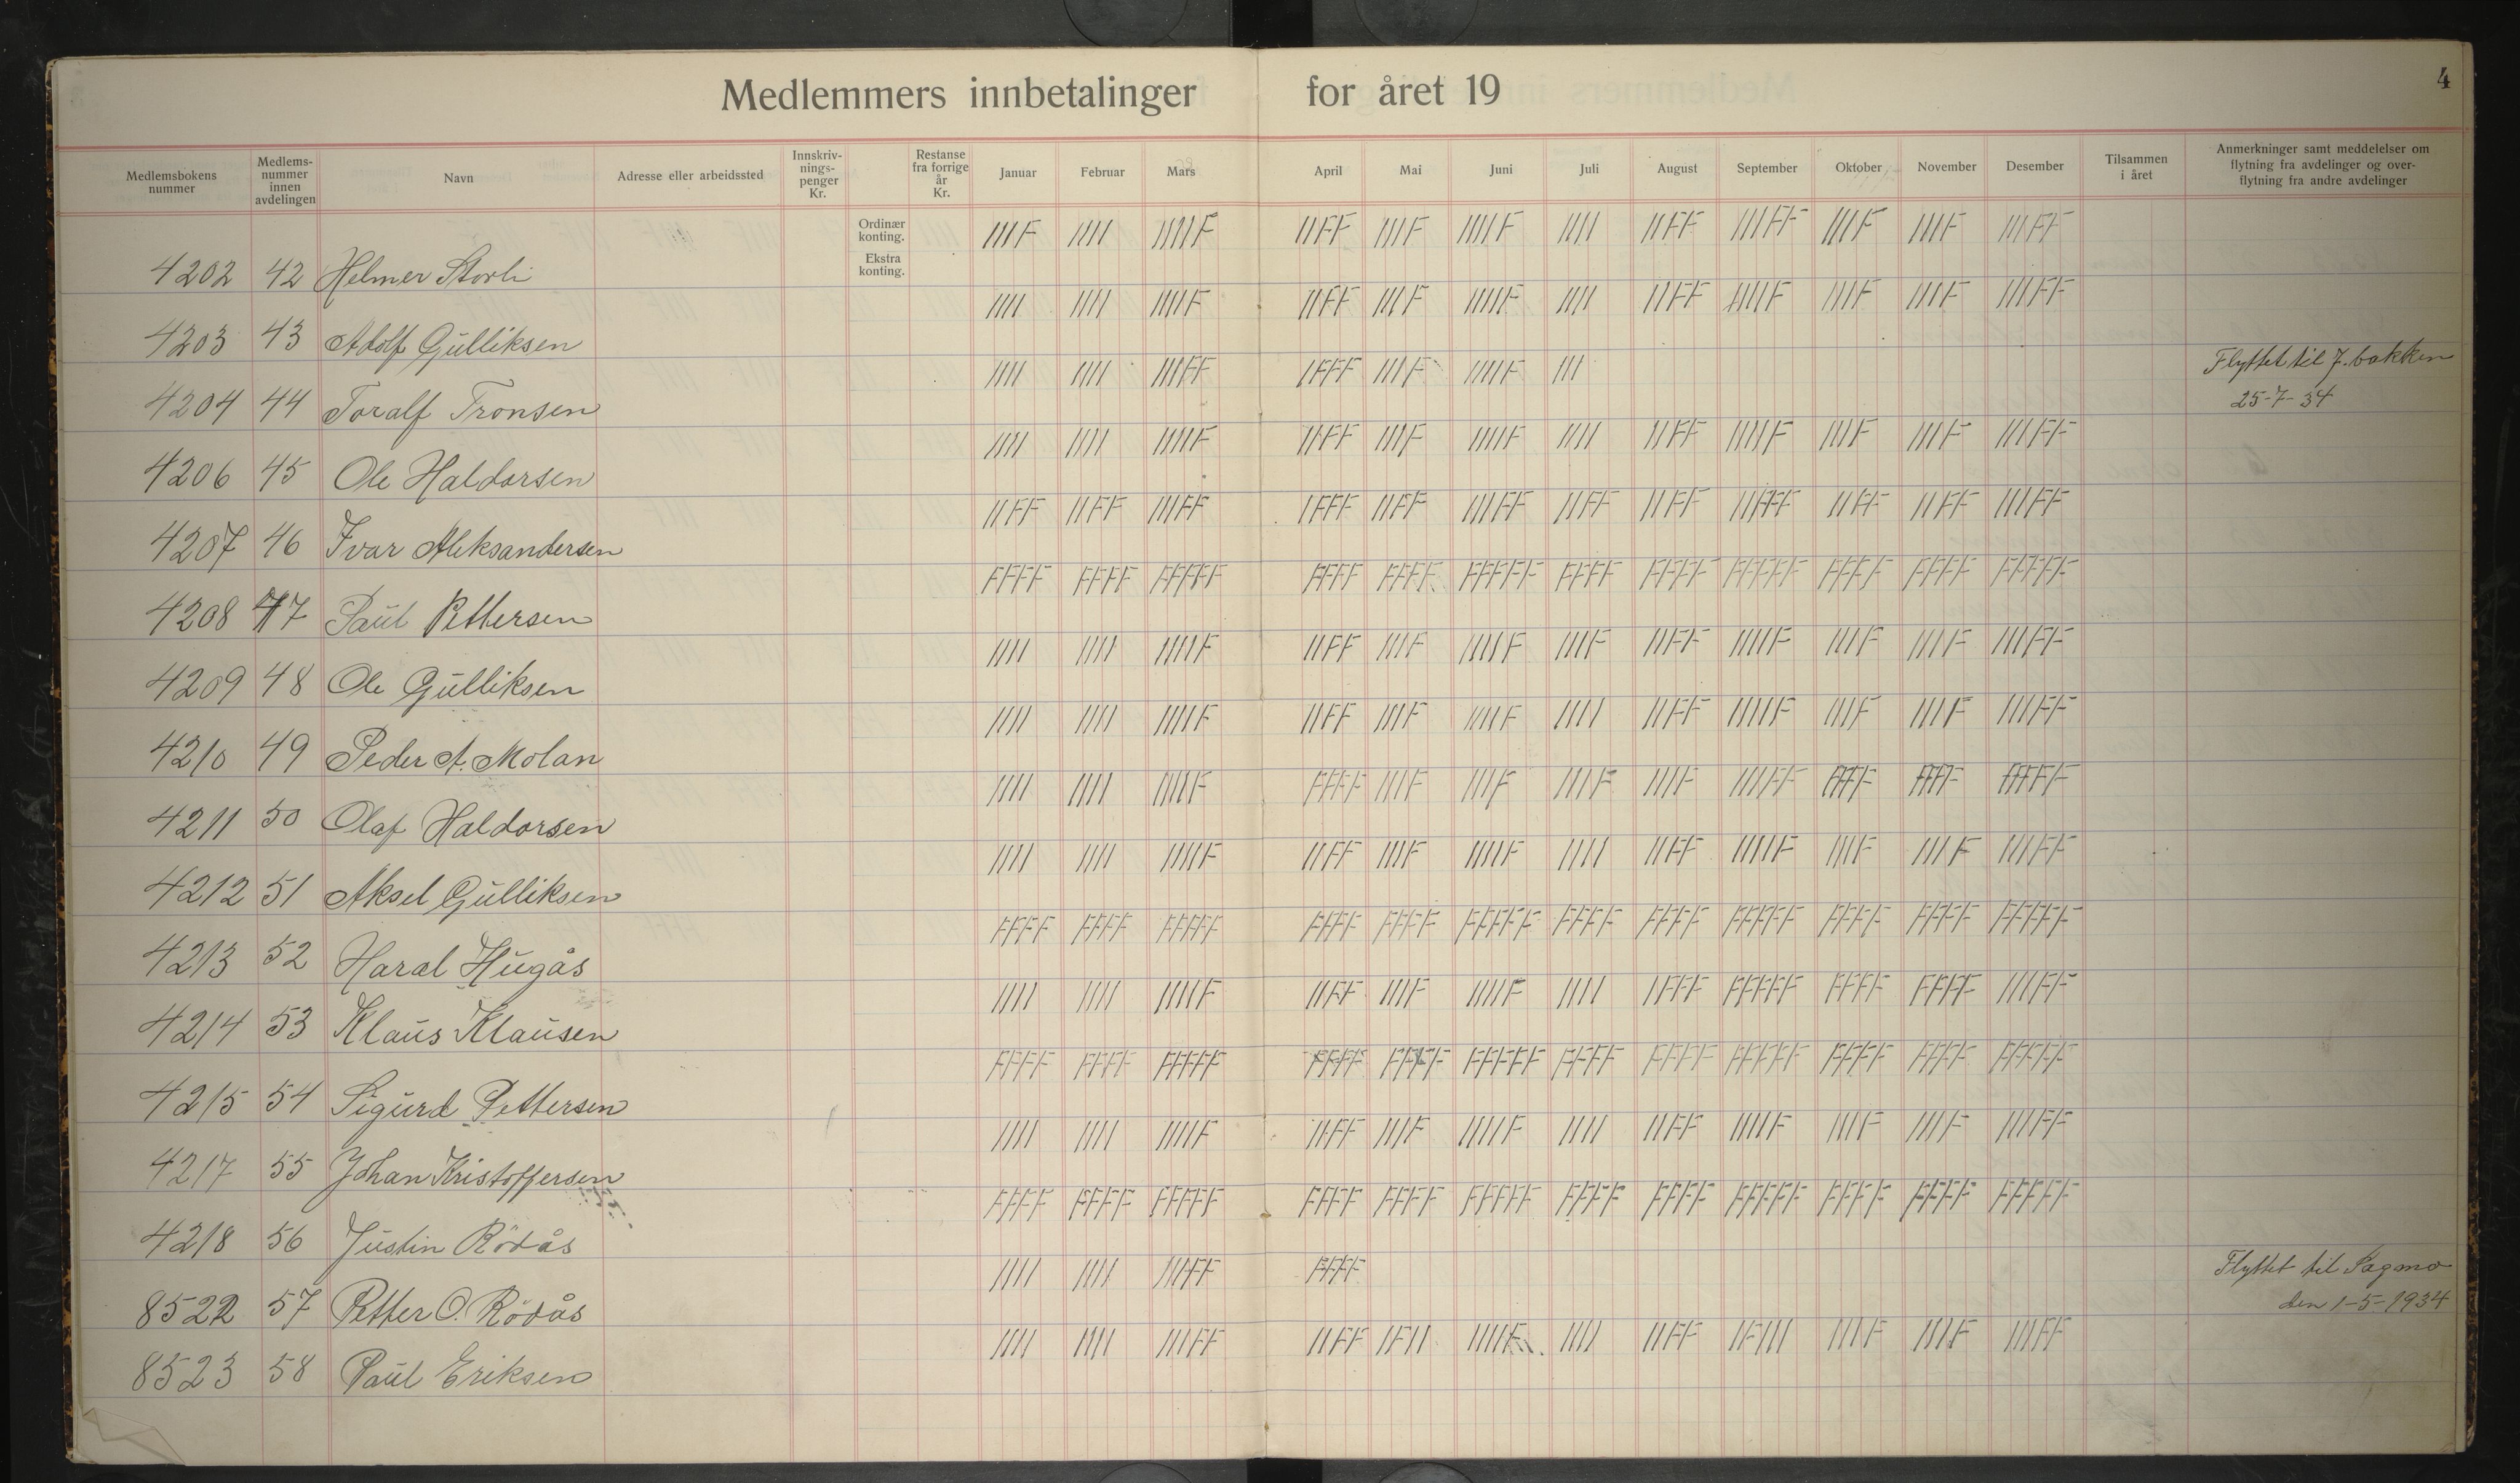 Medlemmers innbetalinger for året 19
4
Medlemsbokens nummer
Medlems-nummer innen avdelingen
Navn
Adresse eller arbeidssted
Innskriv-nings-penger Kr.
Restanse fra forrige år Kr.
Januar
Februar
Mars
April
Mai
Juni
Juli
August
September
Oktober
November
Desember
Tilsammen i året
Anmerkninger samt meddelelser om flytning fra avdelinger og over-flytning fra andre avdelinger
Ordinær konting.
Ekstra konting.
4202 42 Helmer Storli IIIF IIII IIIIF IIFF IIIF IIIIF IIII IIFF IIIFF IIIF IIIF IIIFF
4203 43 Adolf Gulliksen IIII IIII IIIIF IIFF IIIF IIIIF IIII IIFF IIIIF IIIF IIIF IIIFF
4204 44 Toralf Tronsen IIII IIII IIIFF IFFF IIIF IIIIF III Flyttet til J. bakken
25-7-34
4206 45 Ole Haldorsen IIII IIII IIIIF IIFF IIIF IIIIF IIII IIFF IIIIF IIIF IIIF IIIFF
4207 46 Ivar Aleksandersen IIFF IIFF IIIFF IFFF IIFF IIIFF IIFF IIFF IIIFF IIFF IIFF IIIFF
4208 47 Paul Pettersen FFFF FFFF FFFFF FFFF FFFF FFFFF FFFF FFFF FFFFF FFFF FFFF FFFFF
4209 48 Ole Gulliksen IIII IIII IIIIF IIFF IIIF IIIIF IIIF IIFF IIIIF IIIF IIIF IIIFF
4210 49 Peder A. Molan IIII IIII IIIIF IIFF IIIF IIIIF IIII IIFF IIIIF IIIF IIIF IIIFF
4211 50 Olaf Haldorsen IIII IIII IIIIF FFFF IIIF IIIF IIIF IIIF IIIFF FFFF FFFF FFFFF
4212 51 Aksel Gulliksen IIII IIII IIIIF IIFF IIIF IIIIF IIII IIFF IIIIF IIIF IIIF IIIFF
4213 52 Haral Hugås FFFF FFFF FFFFF FFFF FFFF FFFFF FFFF FFFF FFFFF FFFF FFFF FFFFF
4214 53 Klaus Klausen IIII IIII IIIIF IIFF IIIF IIIIF IIII IFFF FFFFF FFFF FFFF IIIFF
4215 54 Sigurd Pettersen FFFF FFFF FFFFF FFFF FFFF FFFFF FFFF FFFF FFFFF FFFF FFFF FFFFF
4217 55 Johan Kristoffersen IIII IIII IIIIF IIFF IIIF IIIIF IIII IIFF IIIIF IIIF IIIF IIIFF
4218 56 Justin Rödås FFFF FFFF FFFFF FFFF FFFF FFFFF FFFF FFFF FFFFF FFFF FFFF FFFFF
8522 57 Petter O. Rödås IIII IIII IIIFF FFFF Flyttet til Sagmo
den 1-5-1934
8523 58 Paul Eriksen IIII IIII IIIFF IIFF IFII IIIIF IIII IIFF IFIII IIIF IIIF IIIFF